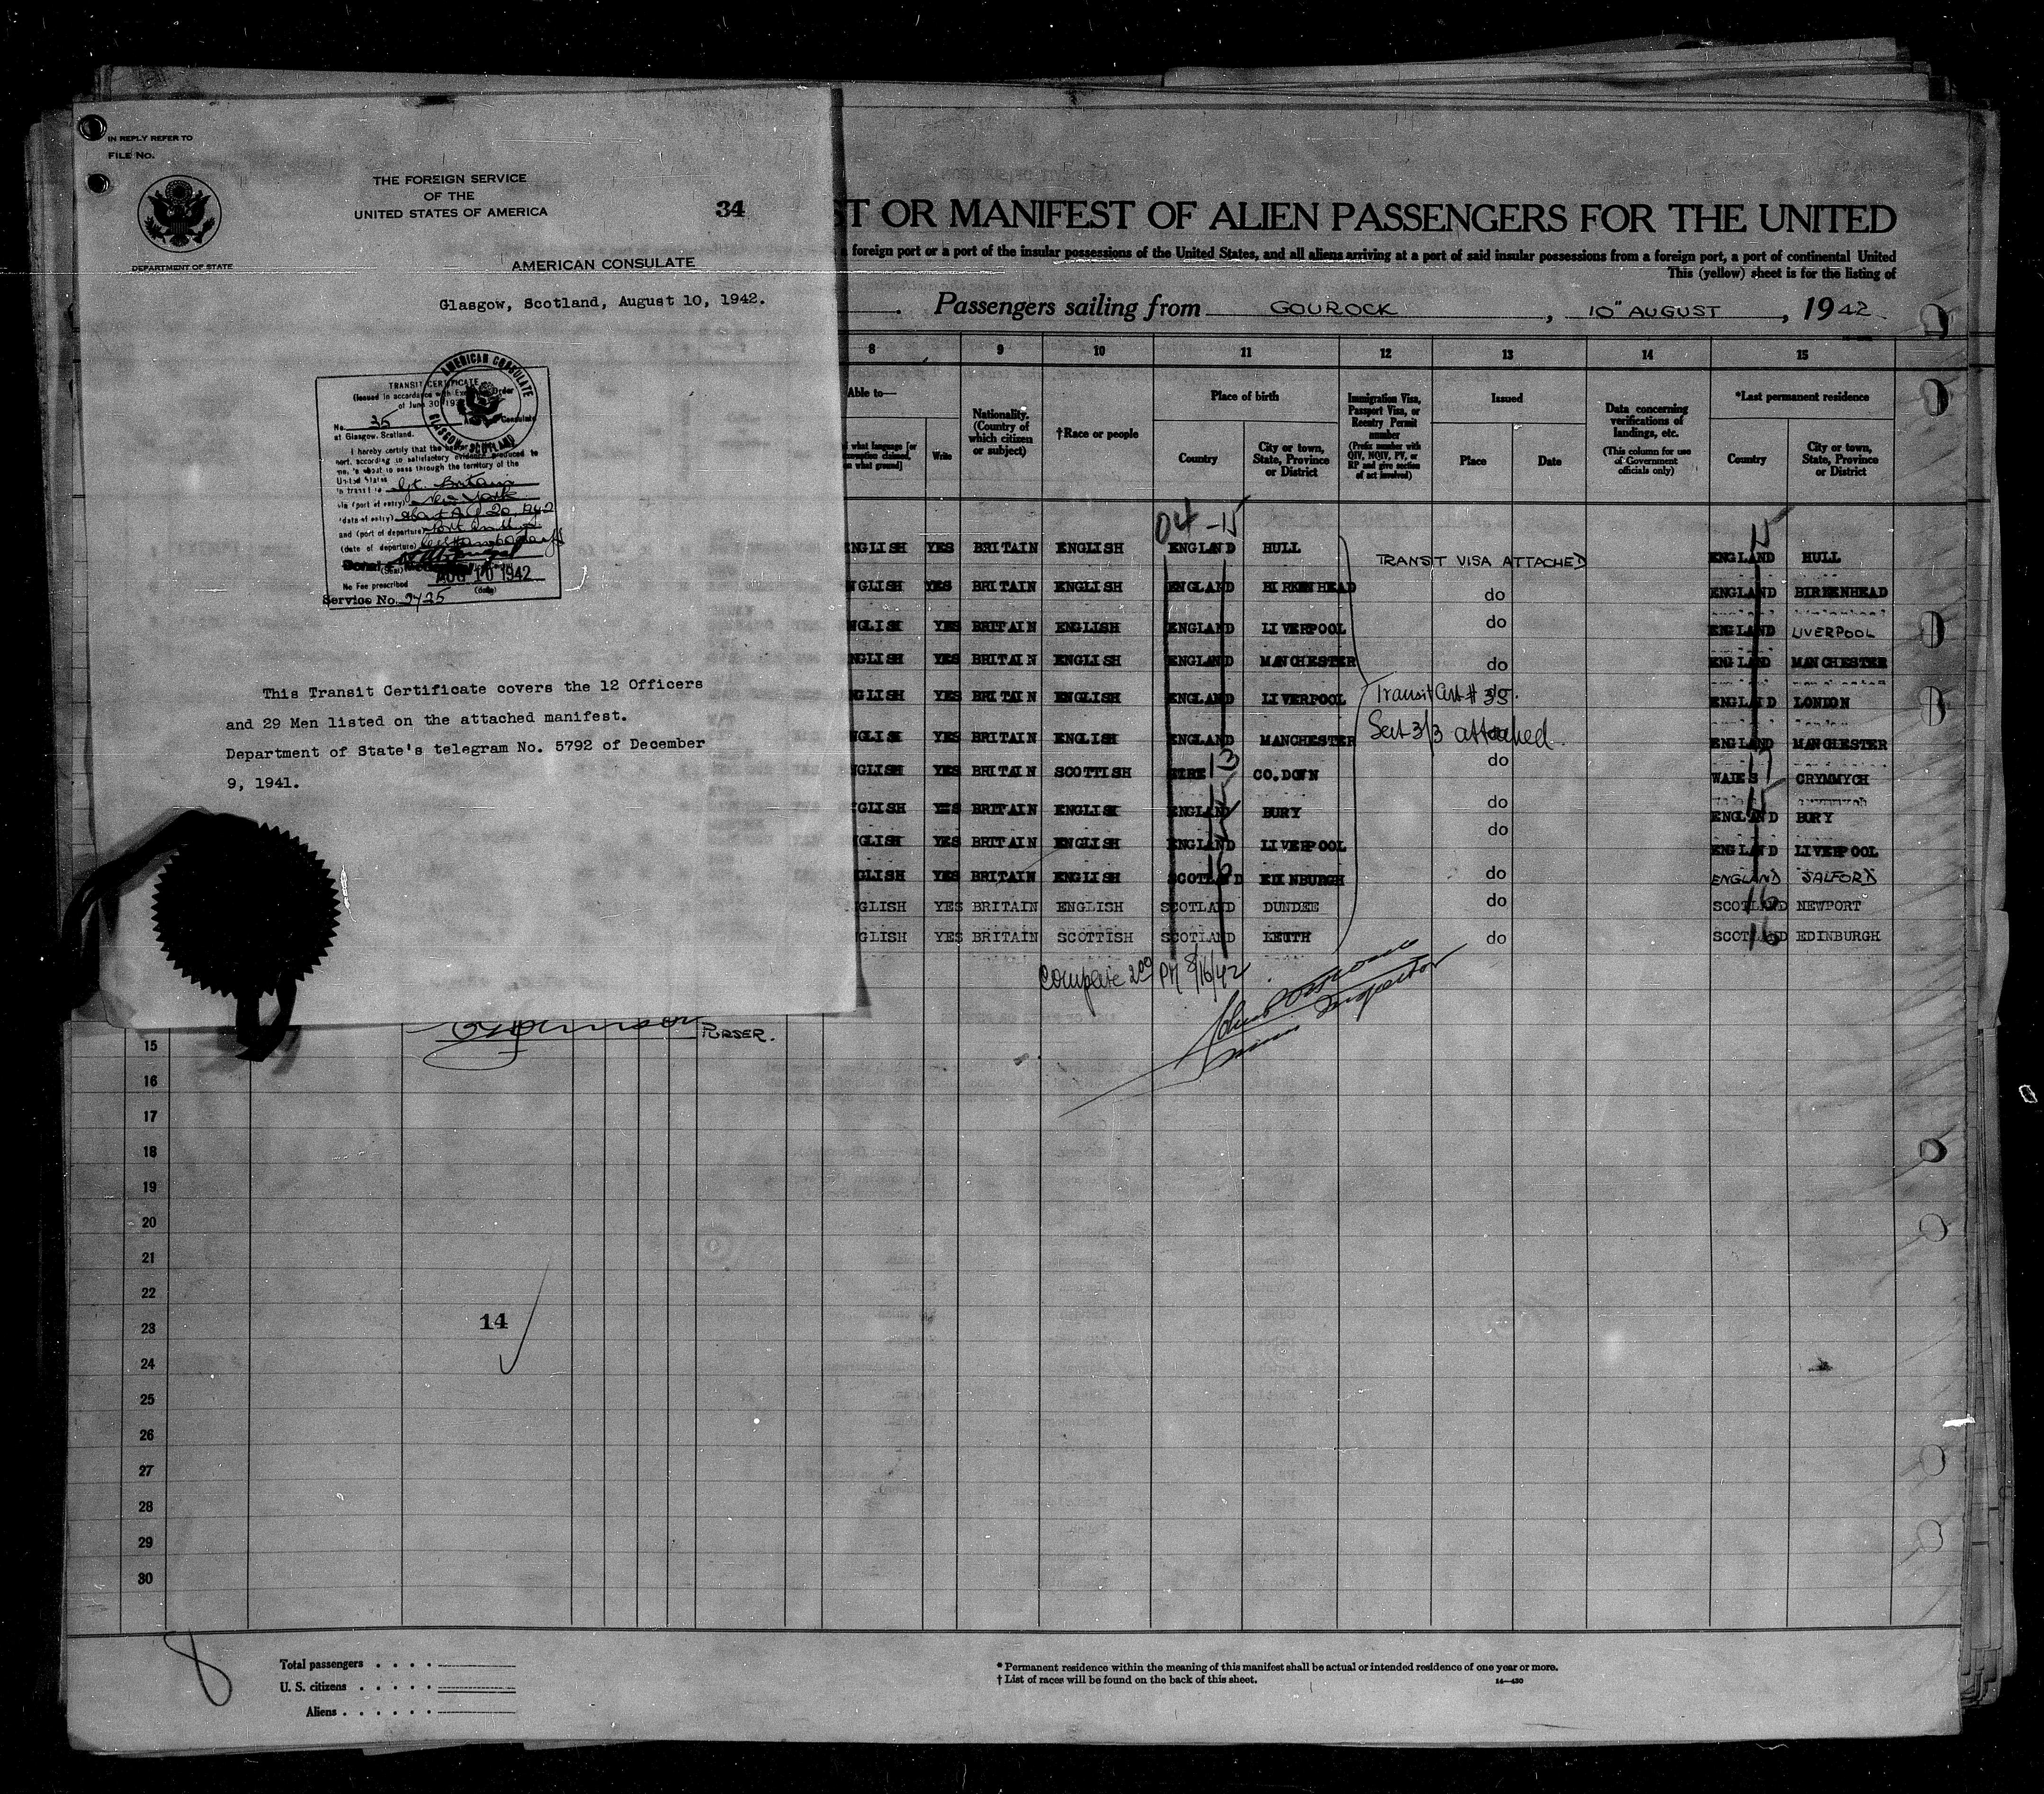 IN REPLY REFER TO
FILE No.
THE FOREIGN SERVICE
OF THE
UNITED STATES OF AMERICA
34
DEPARTMENT OF STATE
AMERICAN CONSULATE
Glasgow, Scotland, August 10, 1942.
AMERICAN CONSULATE
GLASGOW, SCOTLAND
TRANSIT CERTIFICATE
(Issued in accordance with Executive Order
of June 30, 19
No. 35 Consulate
at Glasgow, Scotland.
I hereby certify that the
port, according to satisfactory evidence produced to
me, is about to pass through the territory of the
United States
in transit to Gt. Britain
via (port of entry) New York
(date of entry) about Aug 20, 1942
and (port of departure)
(date of departure)
(Seal)
No Fee prescribed AUG 10 1942
(date)
Service No. 2425
This Transit Certificate covers the 12 Officers
and 29 Men listed on the attached manifest.
Department of State's telegram No. 5792 of December
9, 1941.
T OR MANIFEST OF ALIEN PASSENGERS FOR THE UNITED
a foreign port or a port of the insular possessions of the United States, and all aliens arriving at a port of said insular possessions from a foreign port, a port of continental United
This (yellow) sheet is for the listing of
Passengers sailing from GOUROCK, 10" AUGUST, 1942
8 9 10 11 12 13 14 15
Able to—
what language [or
exemption claimed,
on what ground]
Write
Nationality.
(Country of
which citizen
or subject)
†Race or people
Place of birth
Country
City or town,
State, Province
or District
Immigration Visa,
Passport Visa, or
Reentry Permit
number
(Prefix number with
QIV, NQIV, PV, or
RP and give section
of act involved)
Issued
Place
Date
Data concerning
verifications of
landings, etc.
(This column for use
of Government
officials only)
*Last permanent residence
Country
City or town,
State, Province
or District
04 -15 15
NGLISH YES BRITAIN ENGLISH ENGLAND HULL TRANSIT VISA ATTACHED ENGLAND HULL
NGLISH YES BRITAIN ENGLISH ENGLAND BIRKENHEAD do ENGLAND BIRKENHEAD
NGLISH YES BRITAIN ENGLISH ENGLAND LIVERPOOL do ENGLAND LIVERPOOL
NGLISH YES BRITAIN ENGLISH ENGLAND MANCHESTER do ENGLAND MANCHESTER
GLISH YES BRITAIN ENGLISH ENGLAND LIVERPOOL Transit Cert # 35. do ENGLAND LONDON
GLISH YES BRITAIN ENGLISH ENGLAND MANCHESTER Sect 3/3 attached. ENGLAND MANCHESTER
GLISH YES BRITAIN SCOTTISH EIRE 13 CO. DOWN do WALES 17 CRYMMYCH
GLISH YES BRITAIN ENGLISH ENGLAND 15 BURY do ENGLAND 15 BURY
GLISH YES BRITAIN ENGLISH ENGLAND LIVERPOOL do ENGLAND LIVERPOOL
GLISH YES BRITAIN ENGLISH SCOTLAND 16 EDINBURGH do ENGLAND SALFORD
GLISH YES BRITAIN ENGLISH SCOTLAND DUNDEE do SCOTLAND 16 NEWPORT
GLISH YES BRITAIN SCOTTISH SCOTLAND LEITH do SCOTLAND 16 EDINBURGH
Complete PM 8/16/42
Inspector
PURSER.
15
16
17
18
19
20
21
22
23
14
24
25
26
27
28
29
30
8
Total passengers . . . .
U. S. citizens . . . . .
Aliens . . . . . .
* Permanent residence within the meaning of this manifest shall be actual or intended residence of one year or more.
† List of races will be found on the back of this sheet.
14—430